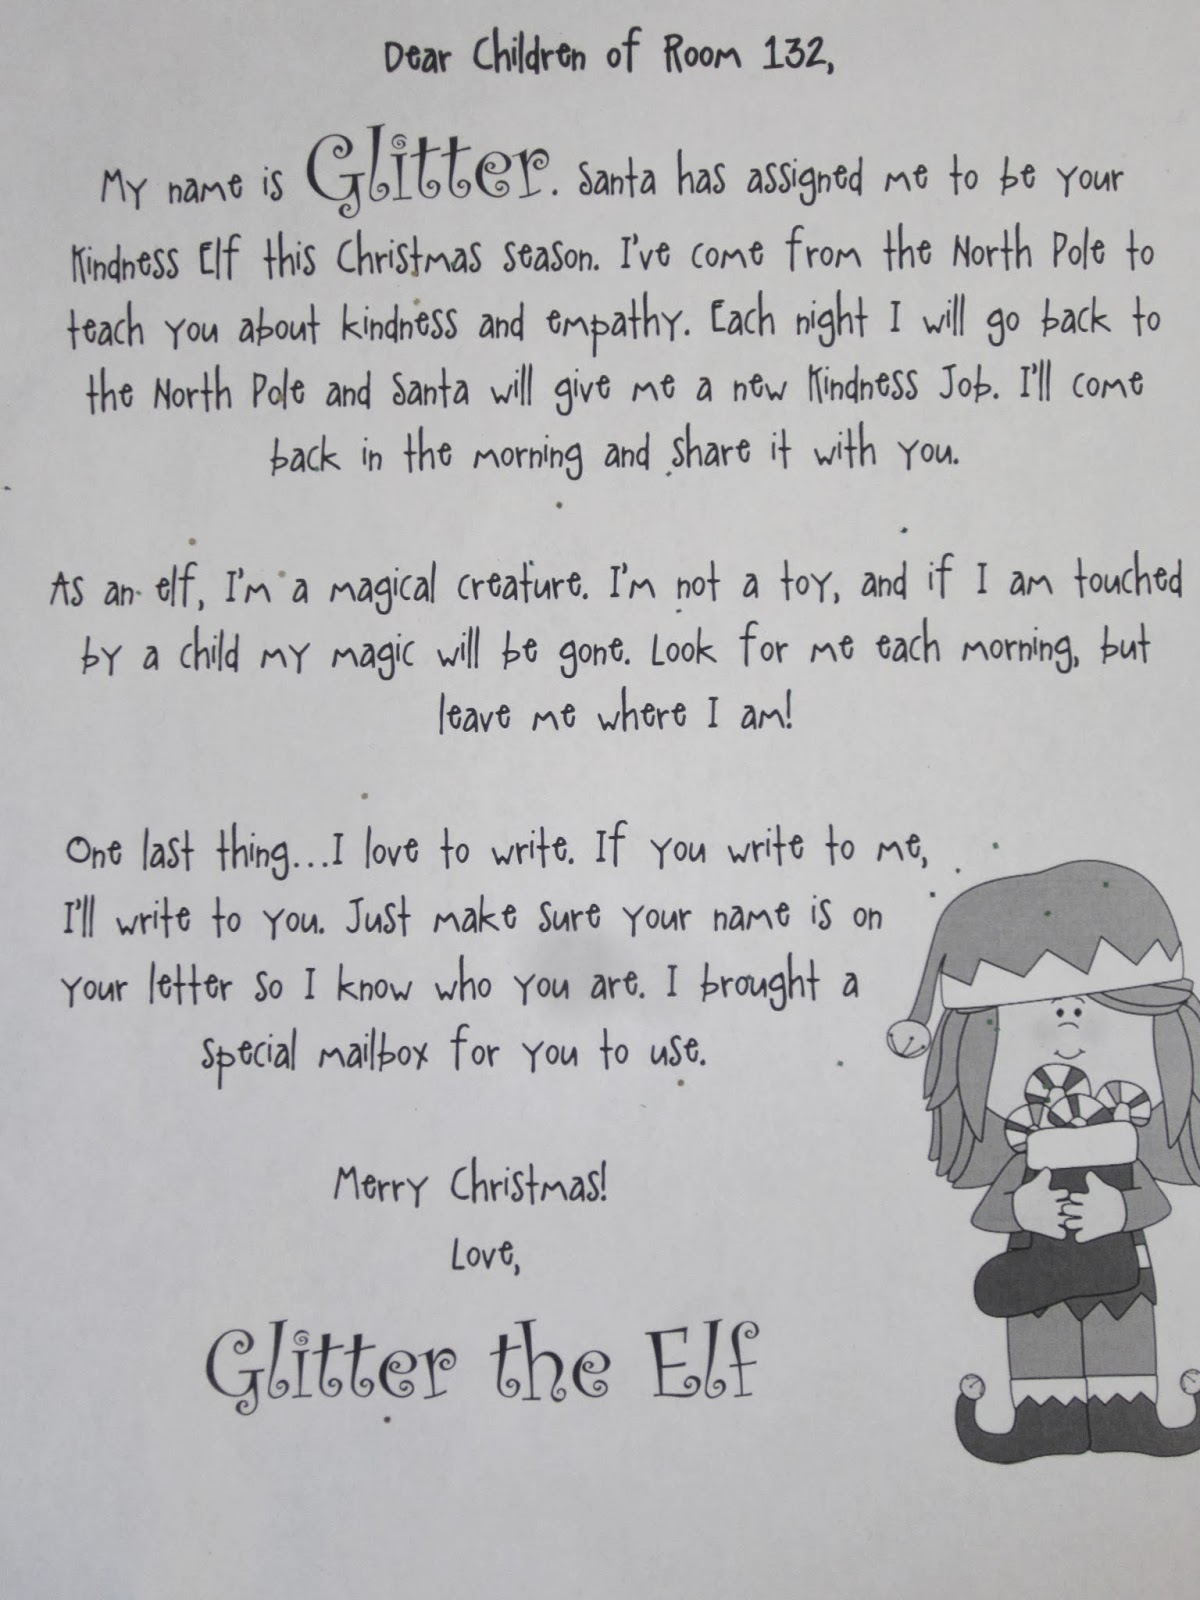 Dear Children of Room 132,
My name is Glitter. Santa has assigned me to be your
Kindness Elf this Christmas season. I've come from the North Pole to
teach you about kindness and empathy. Each night I will go back to
the North Pole and Santa will give me a new Kindness Job. I'll come
back in the morning and share it with you.
As an elf, I'm a magical creature. I'm not a toy, and if I am touched
by a child my magic will be gone. Look for me each morning, but
leave me where I am!
One last thing...I love to write. If you write to me,
I'll write to you. Just make sure your name is on
your letter so I know who you are. I brought a
special mailbox for you to use.
Merry Christmas!
Love,
Glitter the Elf